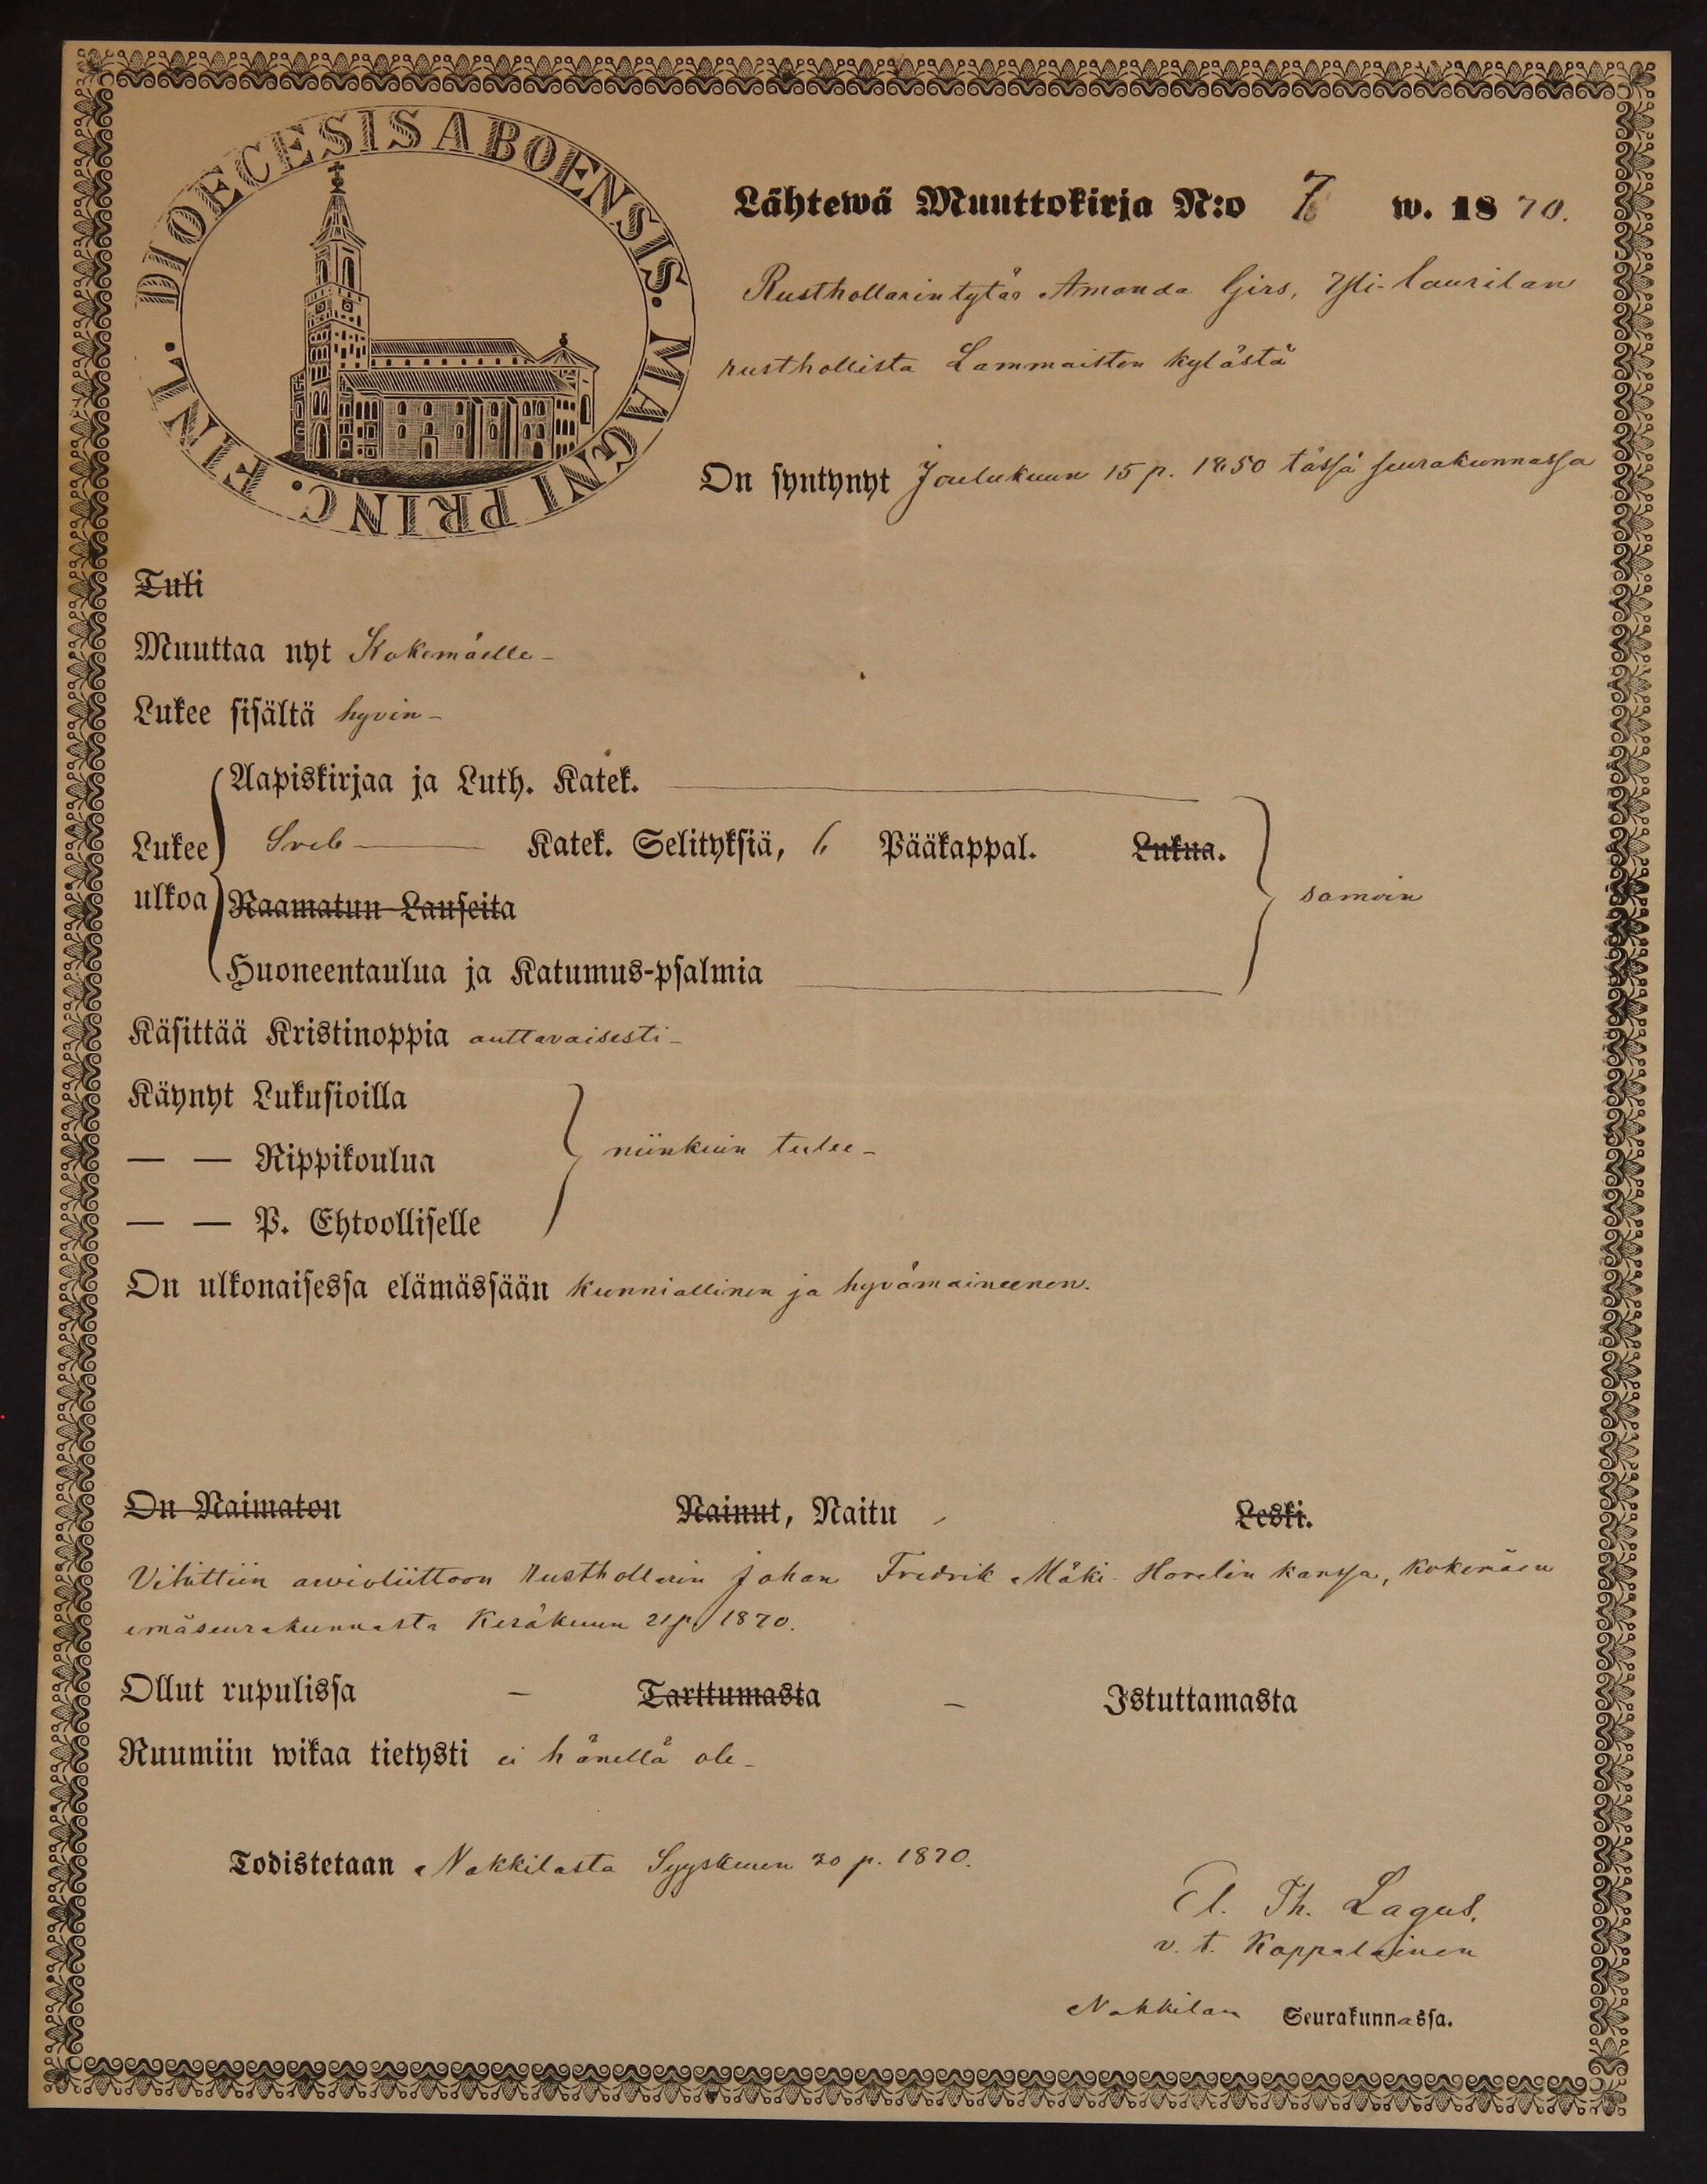 DIOECESIS ABOENSIS. MAGNI PRINC. FINL.
Lähtewä Muuttokirja N:o 7 w. 1870.
Rusthollarintytär Amanda Girs, Yli-Laurilan
rusthollista Lammaisten kylästä
On syntynyt Joulukuun 15 p. 1850 tässä seurakunnassa
Tuli
Muuttaa nyt Kokemäelle -
Lukee sisältä hyvin -
Aapiskirjaa ja Luth. Katek.
Lukee Sveb Katek. Selityksiä, 6 Pääkappal. Lukua.
ulkoa Raamatun Lauseita samoin
Huoneentaulua ja Katumus-psalmia
Käsittää Kristinoppia auttavaisesti -
Käynyt Lukusioilla
— — Rippikoulua niinkuin tulee -
— — P. Ehtoolliselle
On ulkonaisessa elämässään kunniallinen ja hyvämaineenen.
On Naimaton Nainut, Naitu Leski.
Vihittiin avioliittoon Rusthollarin Johan Fredrik Mäki-Horelin kanssa, Kokemäen
emäseurakunnasta Kesäkuun 21 p. 1870.
Ollut rupulissa - Tarttumasta - Istuttamasta
Ruumiin wikaa tietysti ei hänellä ole -
Todistetaan Nakkilasta Syyskuun 20 p. 1870.
Th. Lagus.
v. t. Kappalainen
Nakkilan Seurakunnassa.